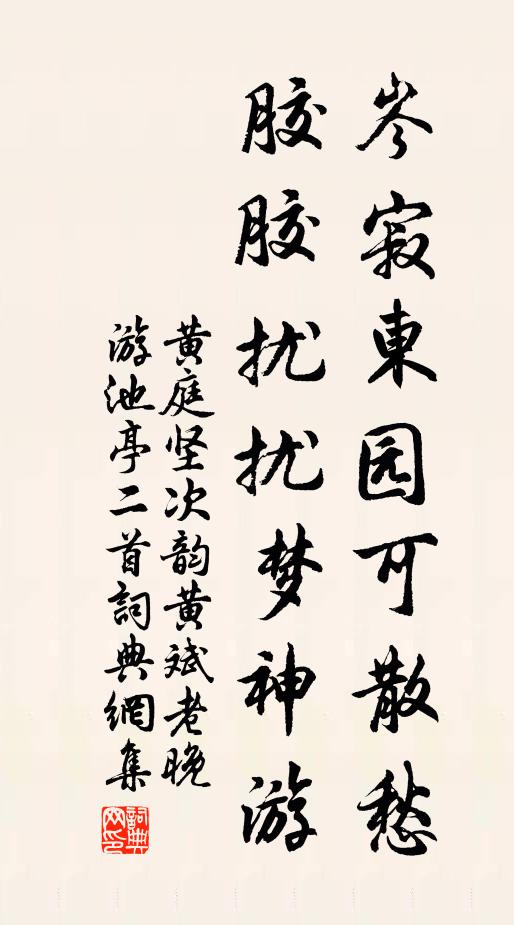 岑寂東园可散愁
胶胶扰扰梦神游
黄庭坚次韵黄斌老晚
游池亭二首詞典網集
詞典
网印